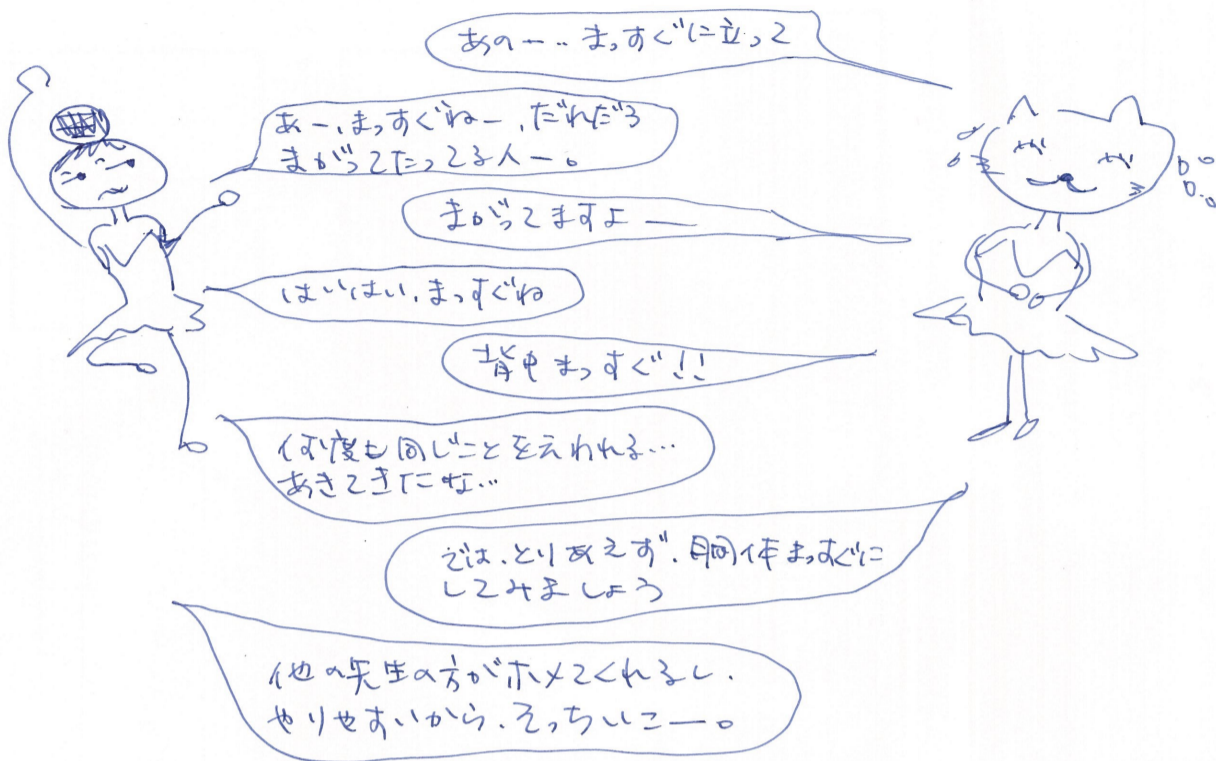 あのー‥まっすぐに立って
あー、まっすぐねー、だれだろ
まがってたってる人ー。
まがってますよー
はいはい、まっすぐね
背中まっすぐ!!
何度も同じことを云われる…
あきてきたな…
では、とりあえず、胴体まっすぐに
してみましょう
他の先生の方がホメてくれるし、
やりやすいから、そっちいこー。